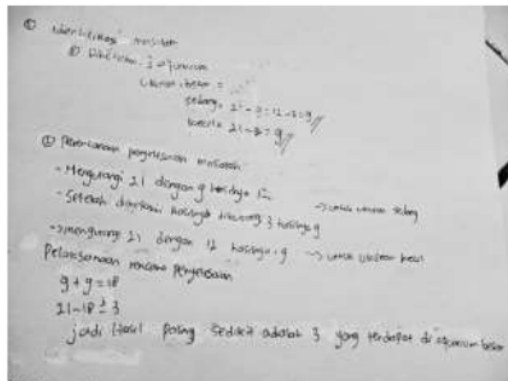 ① Identifikasi masalah
① Diketahui: 3 aquarium
Ukuran: besar =
sedang = 21 - 9 = 12 - 3 = 9 //
kecil = 21 - 9 //
② Perencanaan penyelesaian masalah
- Mengurangi 21 dengan 9 hasilnya 12
- Setelah hasilnya dikurangi 3 hasilnya 9 → untuk ukuran sedang
→ mengurangi 21 dengan 12 hasilnya 9 → untuk ukuran
Pelaksanaan rencana Penyelesaian
9 + 9 = 18
21 - 18 = 3
jadi Hasil paling sedikit adalah 3 yang terdapat di aquarium besar